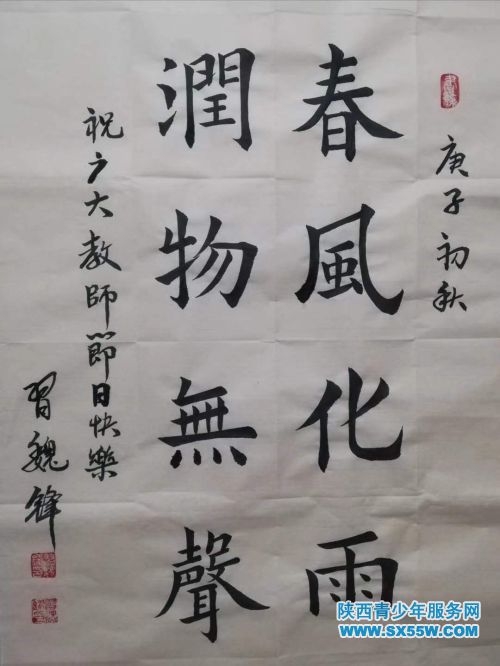 庚子初秋
春風化雨
潤物無聲
祝广大教師節日快樂
習魏鋒
陕西青少年服务网
www.sx55w.com